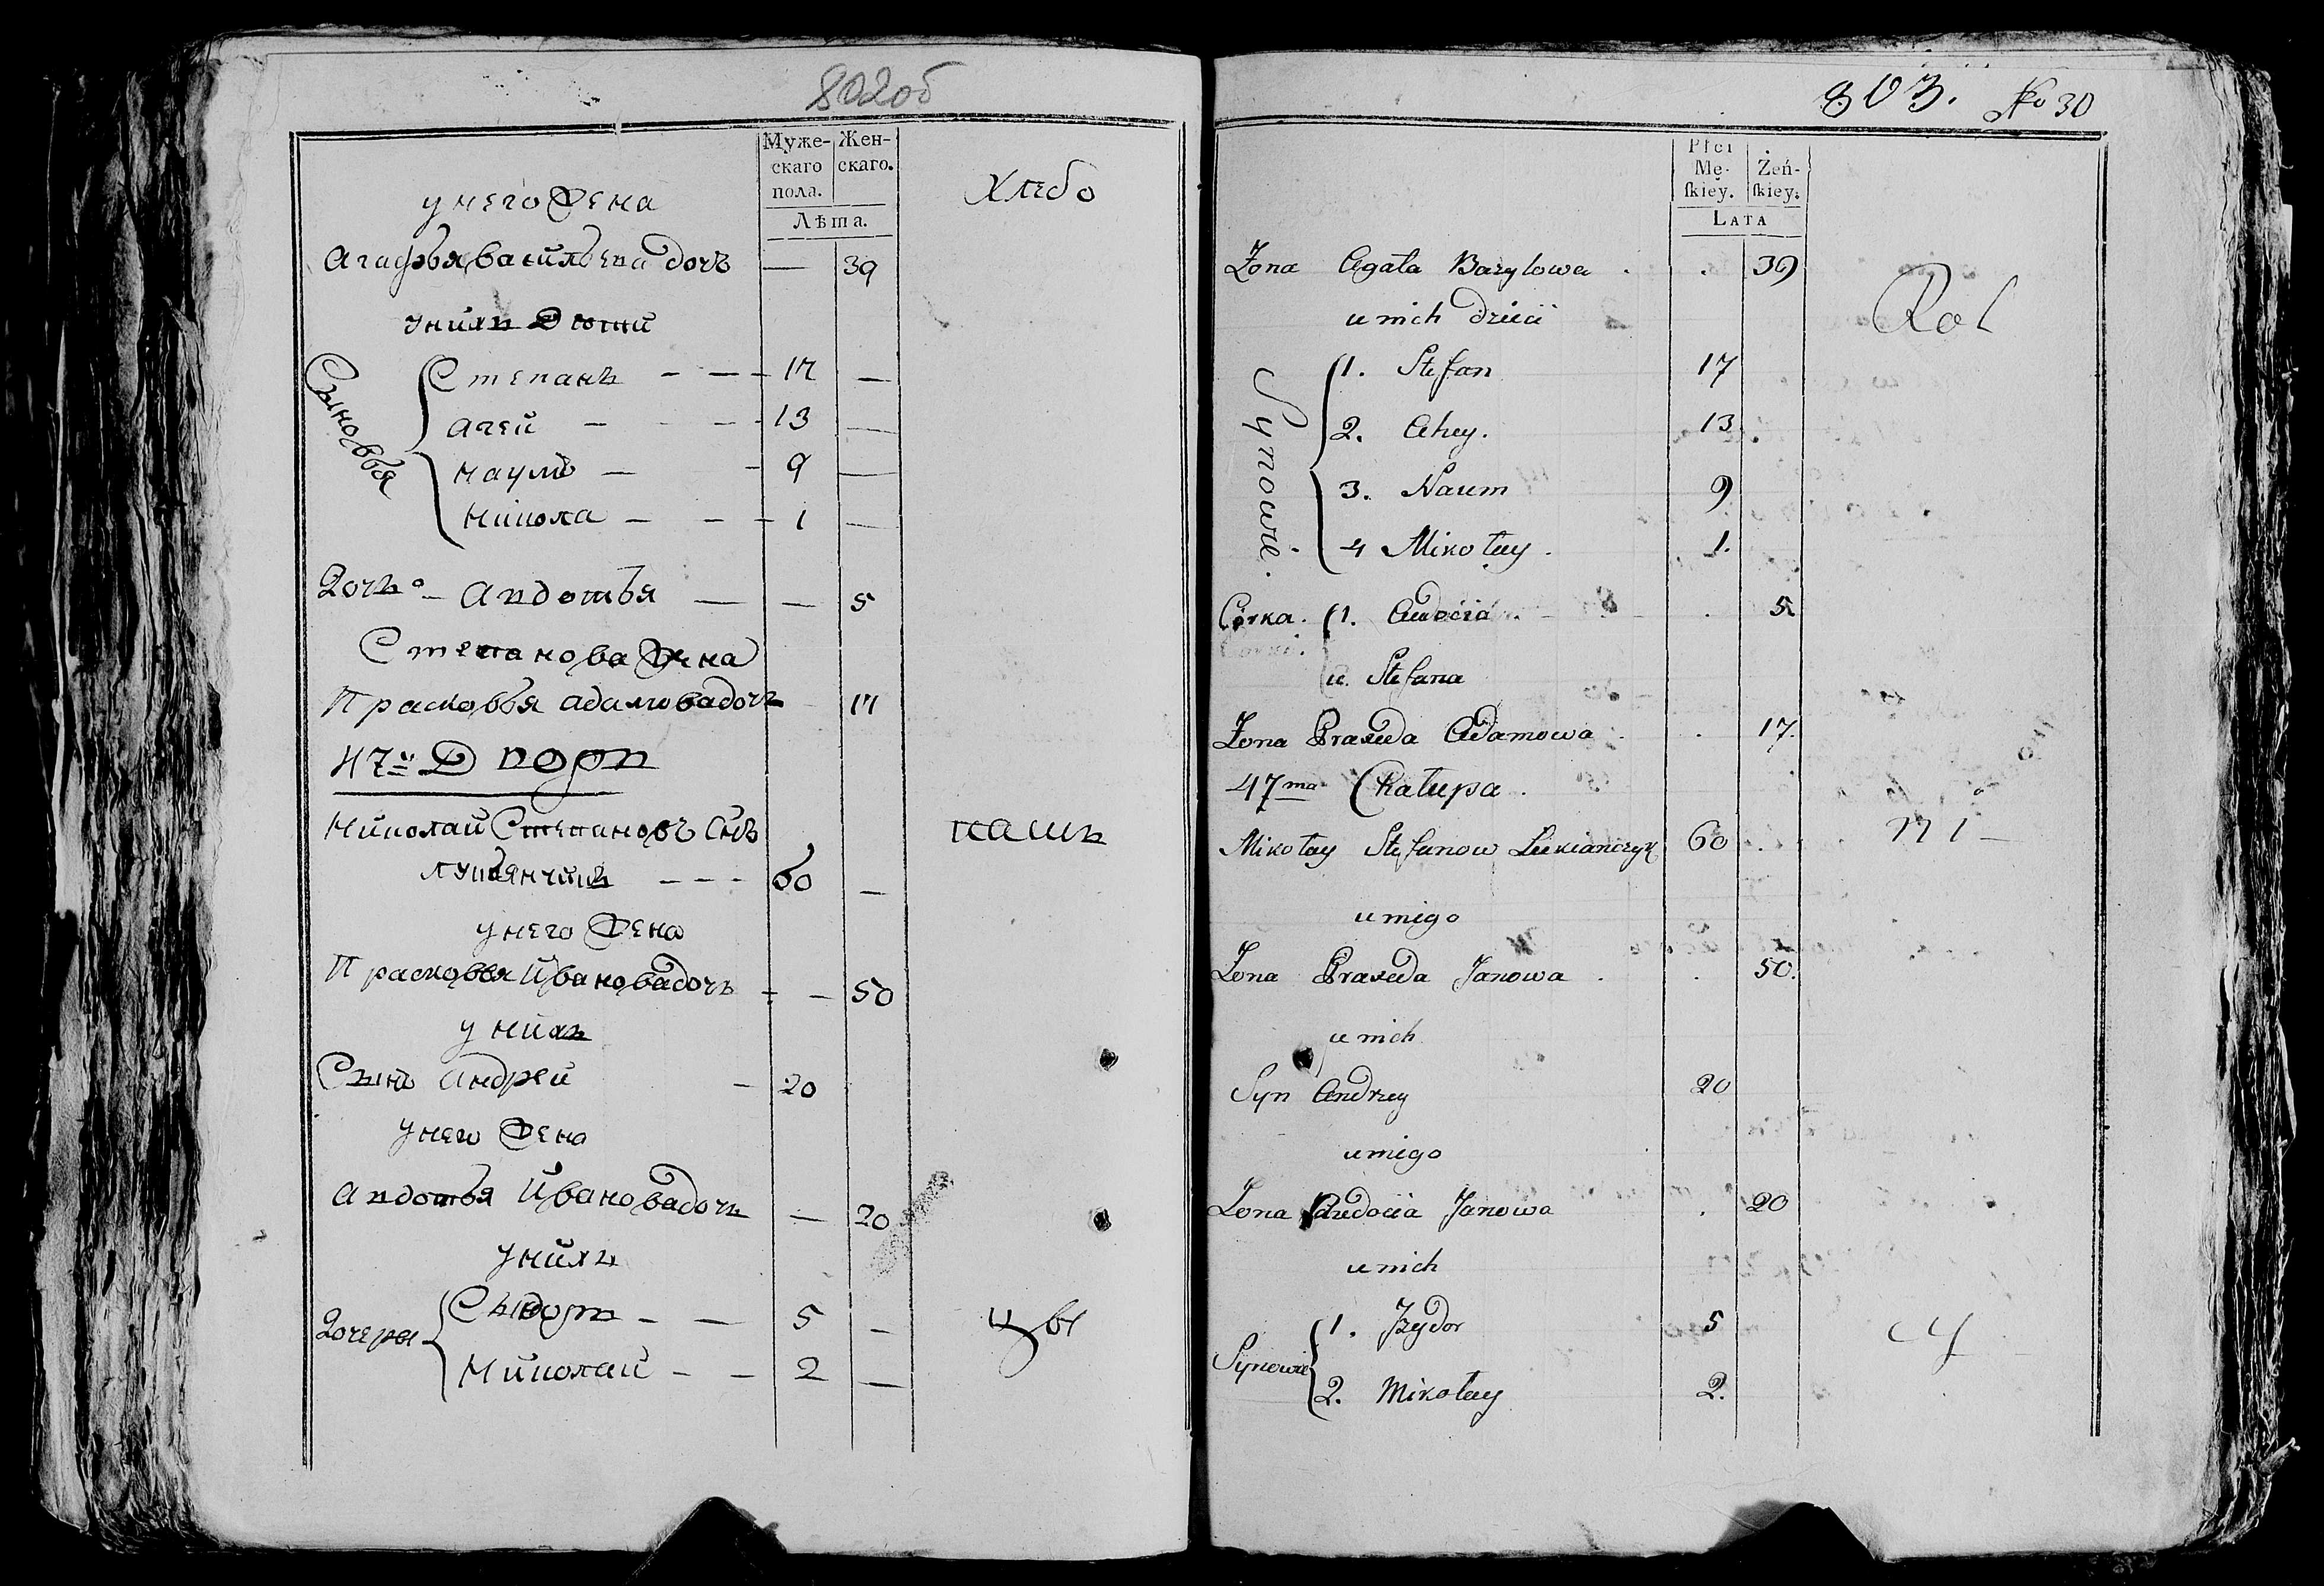 802об
Муже-
скаго
пола.
Жен-
скаго.
Лѣта.
хлебо
у него жена
Агафья васильева дочъ — 39
у нихъ дети
Сыновья
Степанъ — — — 17 —
Агей — — — 13 —
Наумъ — — 9 —
Никола — — — 1 —
Дочъ — Авдотья — — 5
Степанова жена
Прасковья адамова дочъ 17
47й Дворъ
Николай Степановъ Снъ пашъ
лукянчикъ — — — 60 —
у него жена
Прасковья Иванова дочъ — — 50
у нихъ
Сынъ Андрей — 20
у него жена
Авдотья Иванова дочъ — 20
у нихъ
Дочеры
Сыдоръ — — 5 — цы
Николай — — 2 —
803. No 30
Płci
Mę-
ſkiey.
Żeń-
ſkiey.
LATA
Żona Agata Bazylowa . . 39
u nich dzieci
Rol
Synowie.
1. Stefan 17
2. Ahey. 13
3. Naum 9
4 Mikołay . 1.
Córka. 1. Audocia . . 5
u Stefana
Żona Praxeda Adamowa . . 17.
47ma Chałupa .
Mikołay Stefanow Łukianczyk 60 . ni —
u niego
Żona Praxeda Janowa . . 50.
u nich
Syn Andrzey 20
u niego
Żona Audocia Janowa . 20
u nich
Synowie
1. Jzydor 5 cy
2. Mikołay 2.